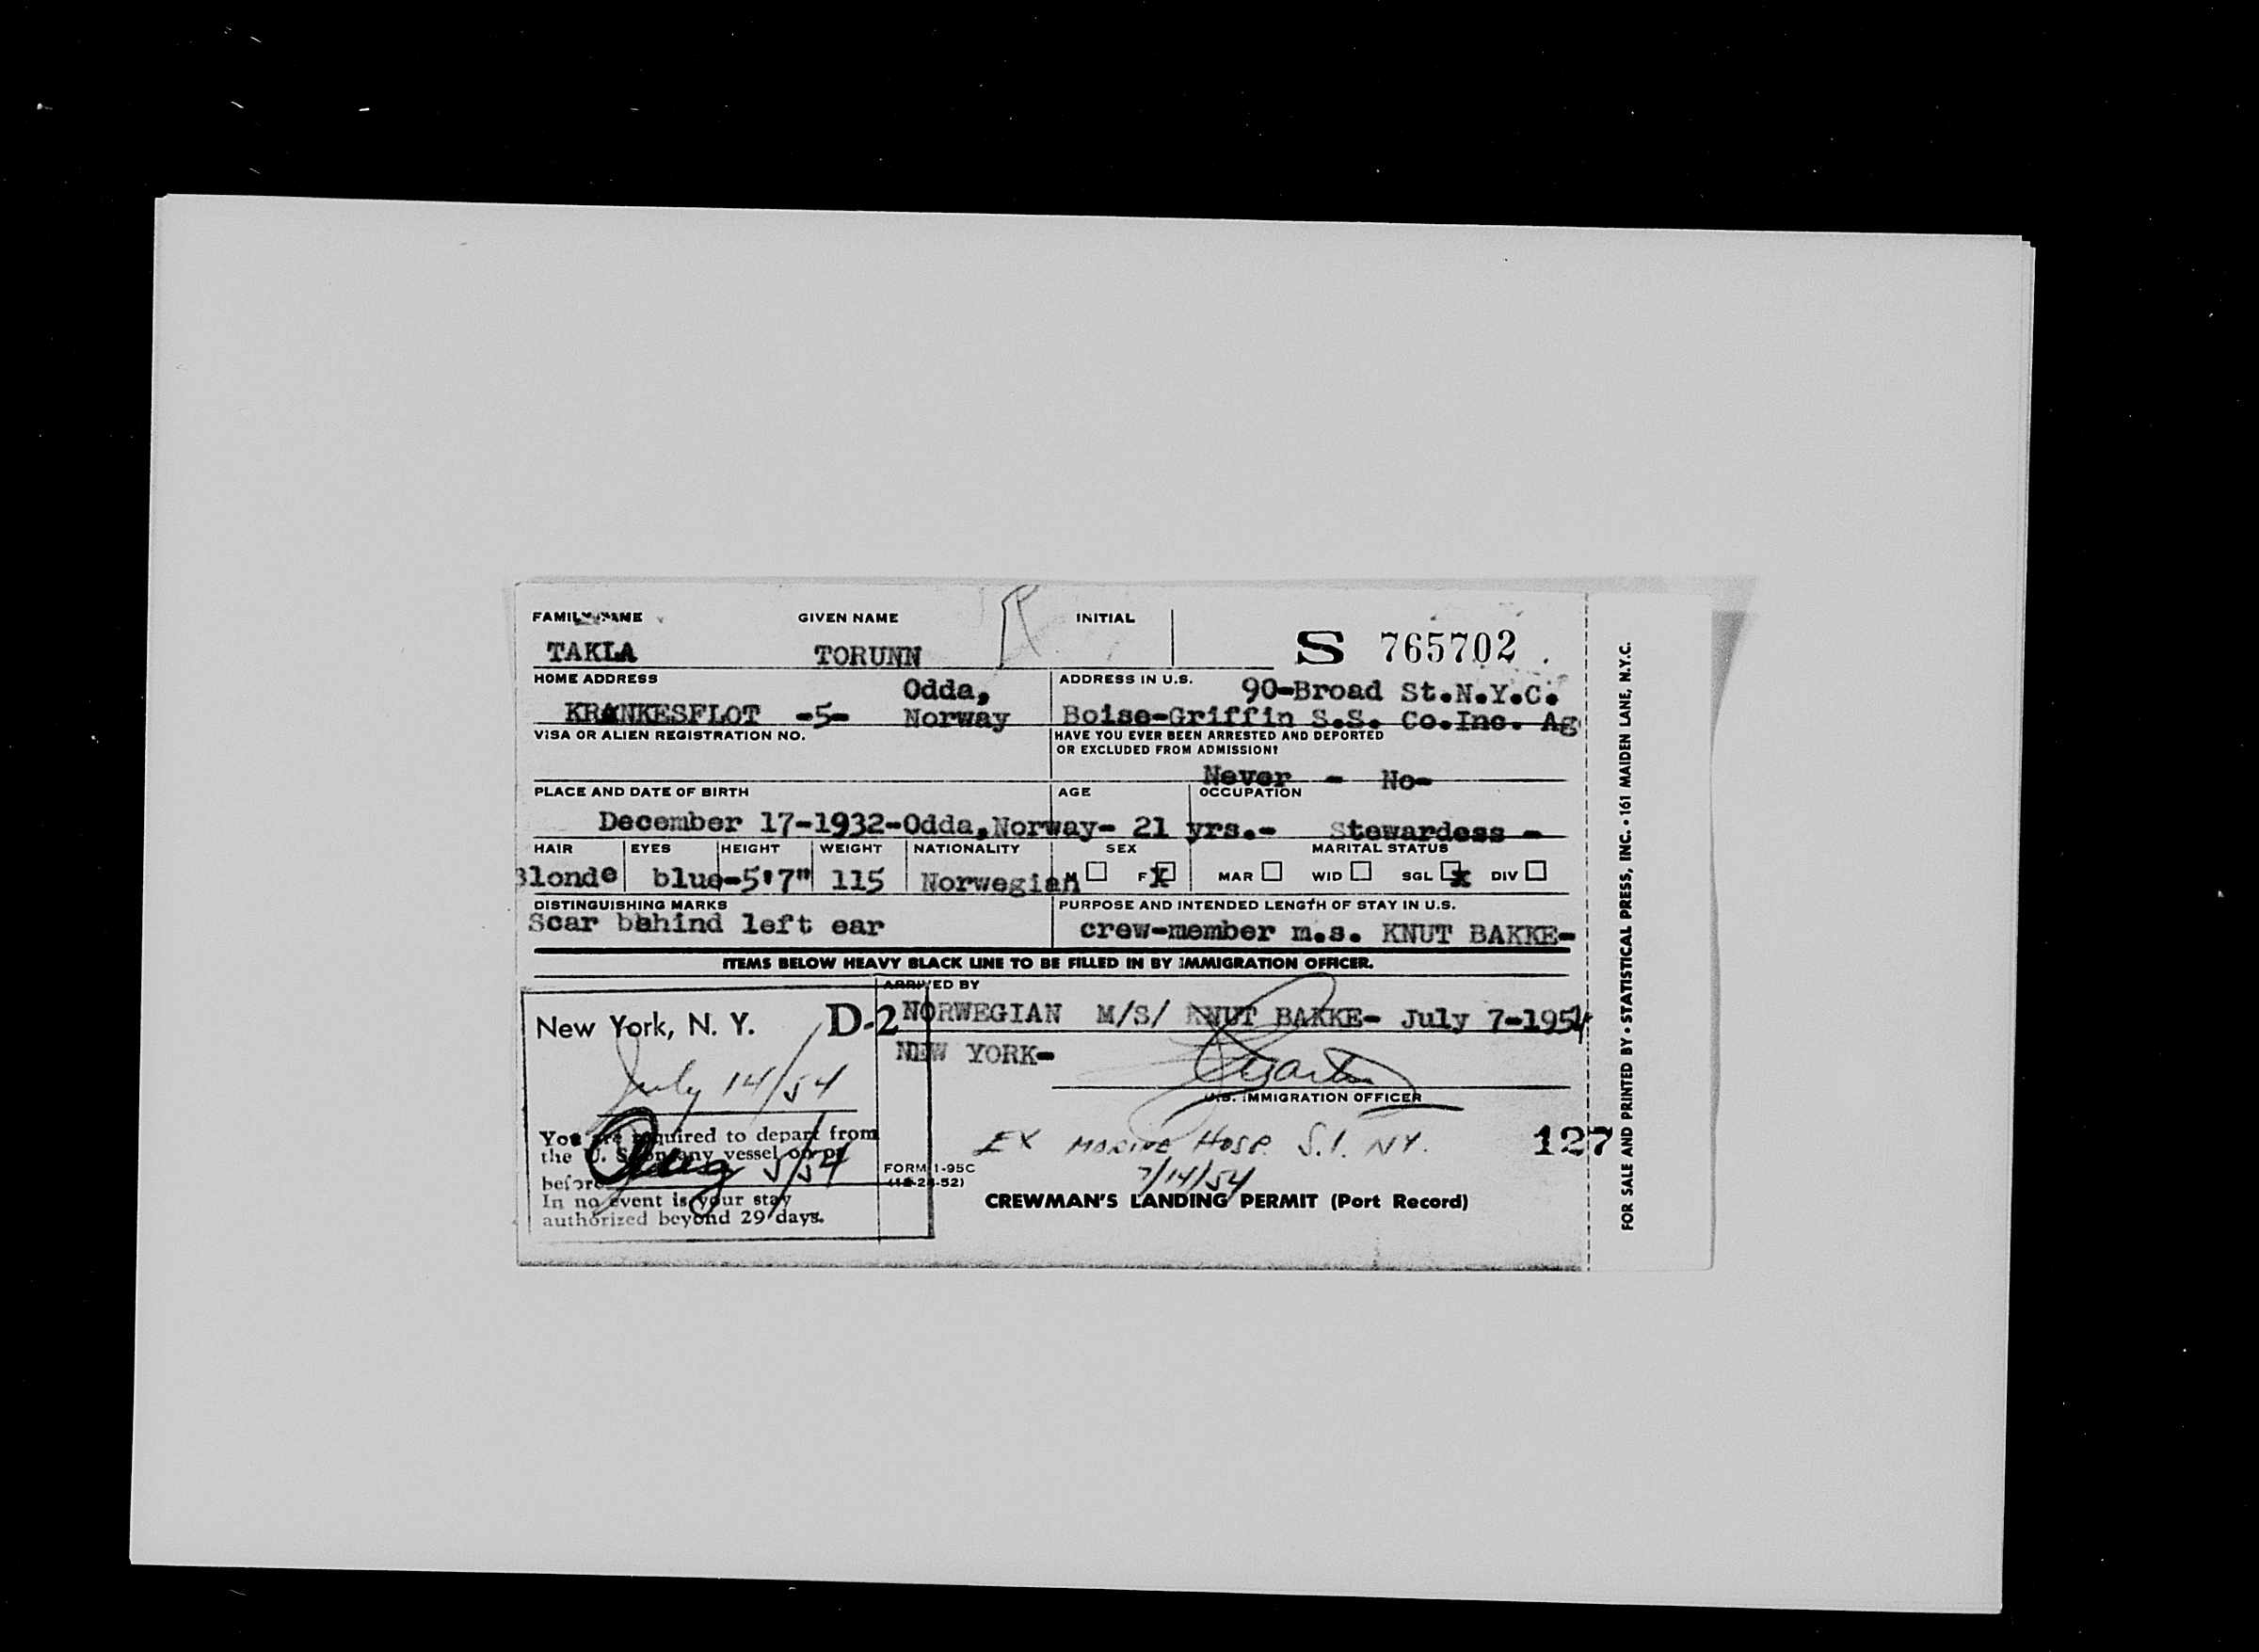 FAMILY NAME GIVEN NAME INITIAL
TAKLA TORUNN R S 765702
HOME ADDRESS ADDRESS IN U.S.
Odda, 90-Broad St.N.Y.C.
KRANKESFLOT -5- Norway Boise-Griffin S.S. Co.Inc. Ag
VISA OR ALIEN REGISTRATION NO. HAVE YOU EVER BEEN ARRESTED AND DEPORTED
OR EXCLUDED FROM ADMISSION?
Never - No-
PLACE AND DATE OF BIRTH AGE OCCUPATION
December 17-1932-Odda,Norway- 21 yrs.- Stewardess -
HAIR EYES HEIGHT WEIGHT NATIONALITY SEX MARITAL STATUS
Blonde blue-5'7" 115 Norwegian M F X MAR WID SGL x DIV
DISTINGUISHING MARKS PURPOSE AND INTENDED LENGTH OF STAY IN U.S.
Scar behind left ear crew-member m.s. KNUT BAKKE-
ITEMS BELOW HEAVY BLACK LINE TO BE FILLED IN BY IMMIGRATION OFFICER.
ARRIVED BY
New York, N. Y. D-2 NORWEGIAN M/S/ KNUT BAKKE- July 7-1954
NEW YORK-
July 14/54
U.S. IMMIGRATION OFFICER
You are required to depart from
the U. S. on any vessel on or
before Aug 5/54
In no event is your stay
authorized beyond 29 days.
EX MARINE HOSP. S.I. NY. 127
7/14/54
FORM I-95C
CREWMAN'S LANDING PERMIT (Port Record)
FOR SALE AND PRINTED BY • STATISTICAL PRESS, INC. • 161 MAIDEN LANE, N.Y.C.